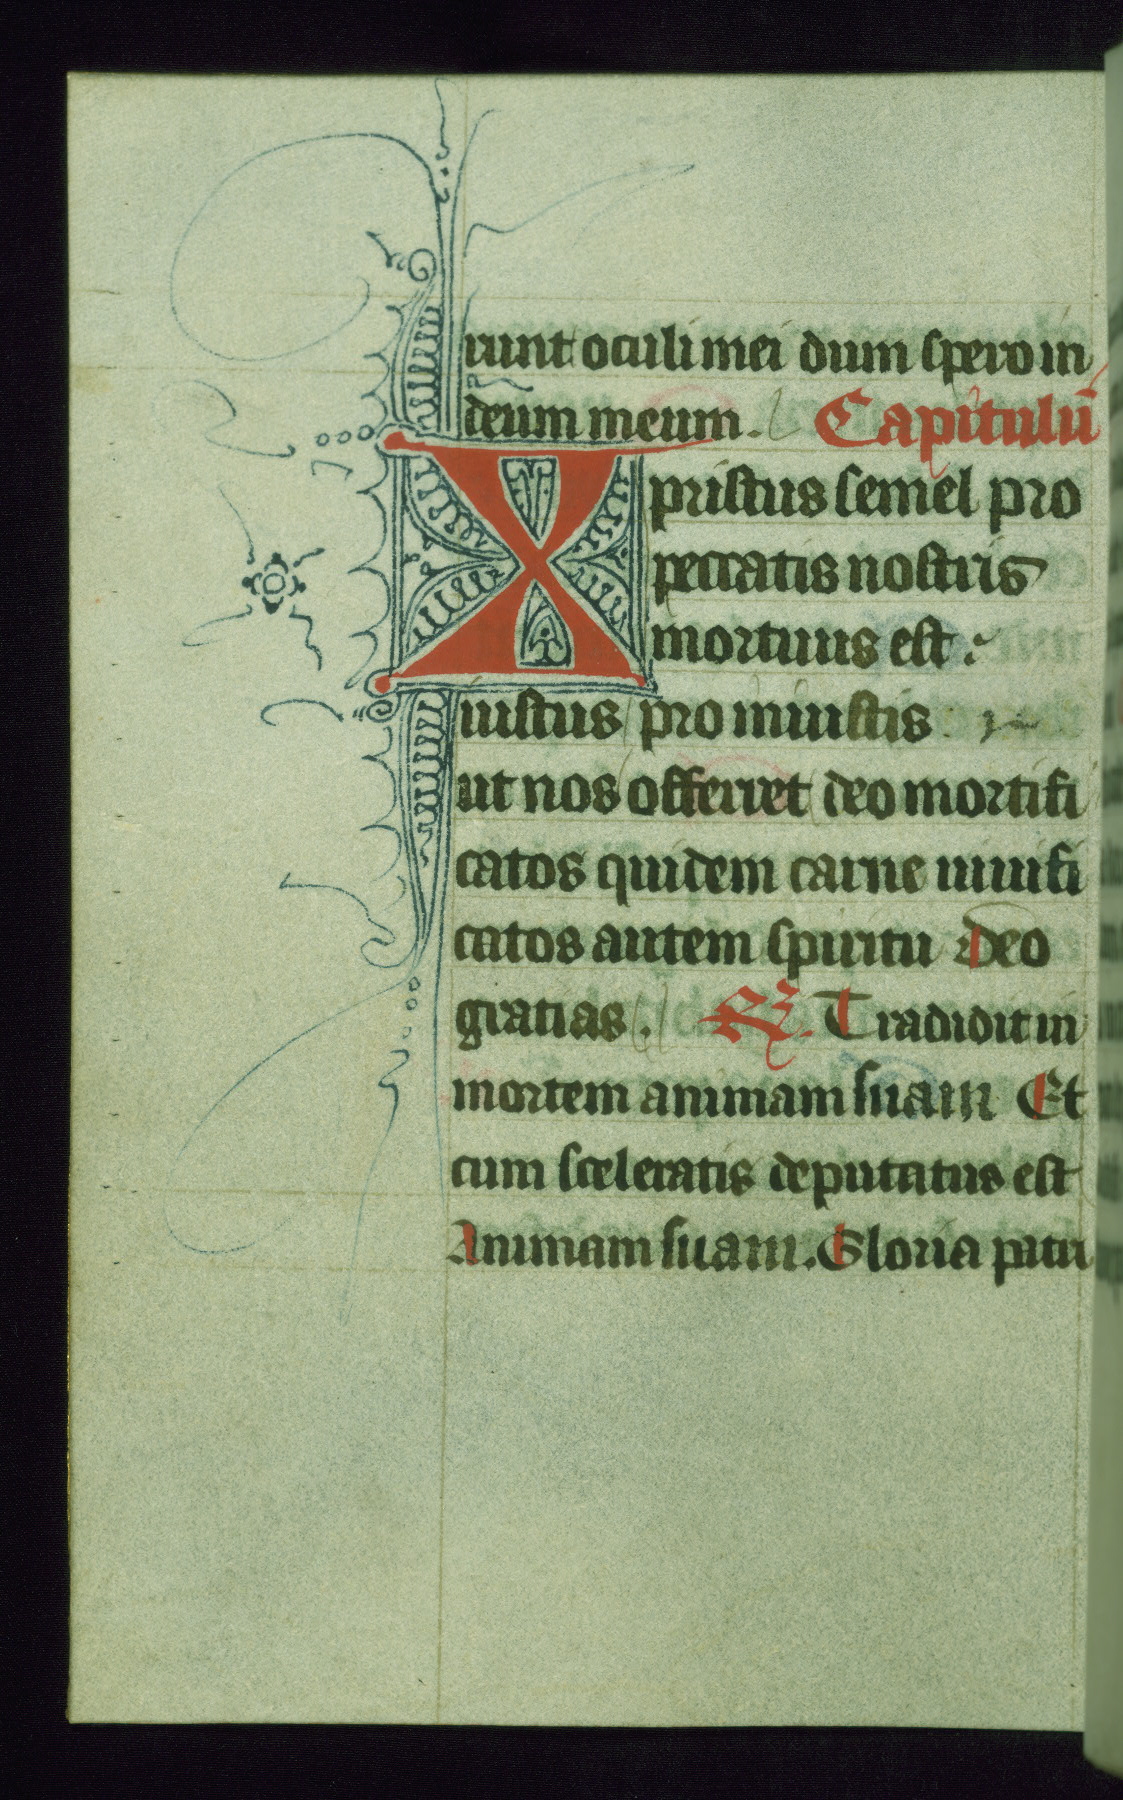 runt oculi mei dum spero in
deum meum. Capitulū
Xpristus semel pro
peccatis nostris
mortuus est :
iustus pro iniustis
ut nos offerret deo mortifi
catos quidem carne uiuifi
catos autem spiritu Deo
gratias. R. Tradidit in
mortem animam suam Et
cum sceleratis deputatus est
Animam suam. Gloria patri